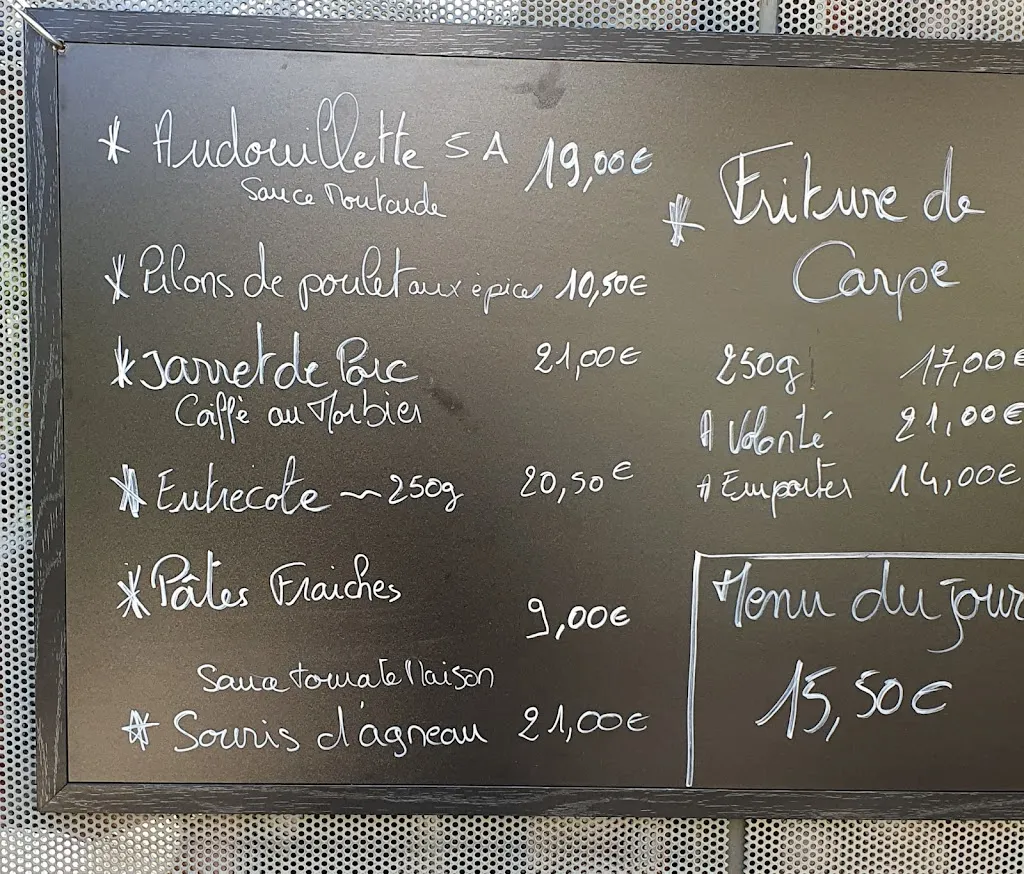 * Andouillette 5 A 19,00€
Sauce Moutarde
* Pilons de poulet aux épices 10,50€
* Jarret de Porc 21,00€
Coiffé au Morbier
* Entrecote ~250g 20,50€
* Pâtes Fraiches
9,00€
Sauce tomate Maison
* Souris d'agneau 21,00€
* Friture de
Carpe
250g 17,00€
A Volonté 21,00€
A Emporter 14,00€
Menu du jour
15,50€